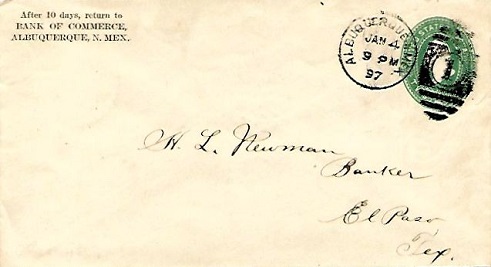 After 10 days, return to
BANK OF COMMERCE,
ALBUQUERQUE, N. MEX.
ALBUQUERQUE
JAN 4
9 PM
97
STATE
H. L. Newman
Banker
El Paso
Tex.